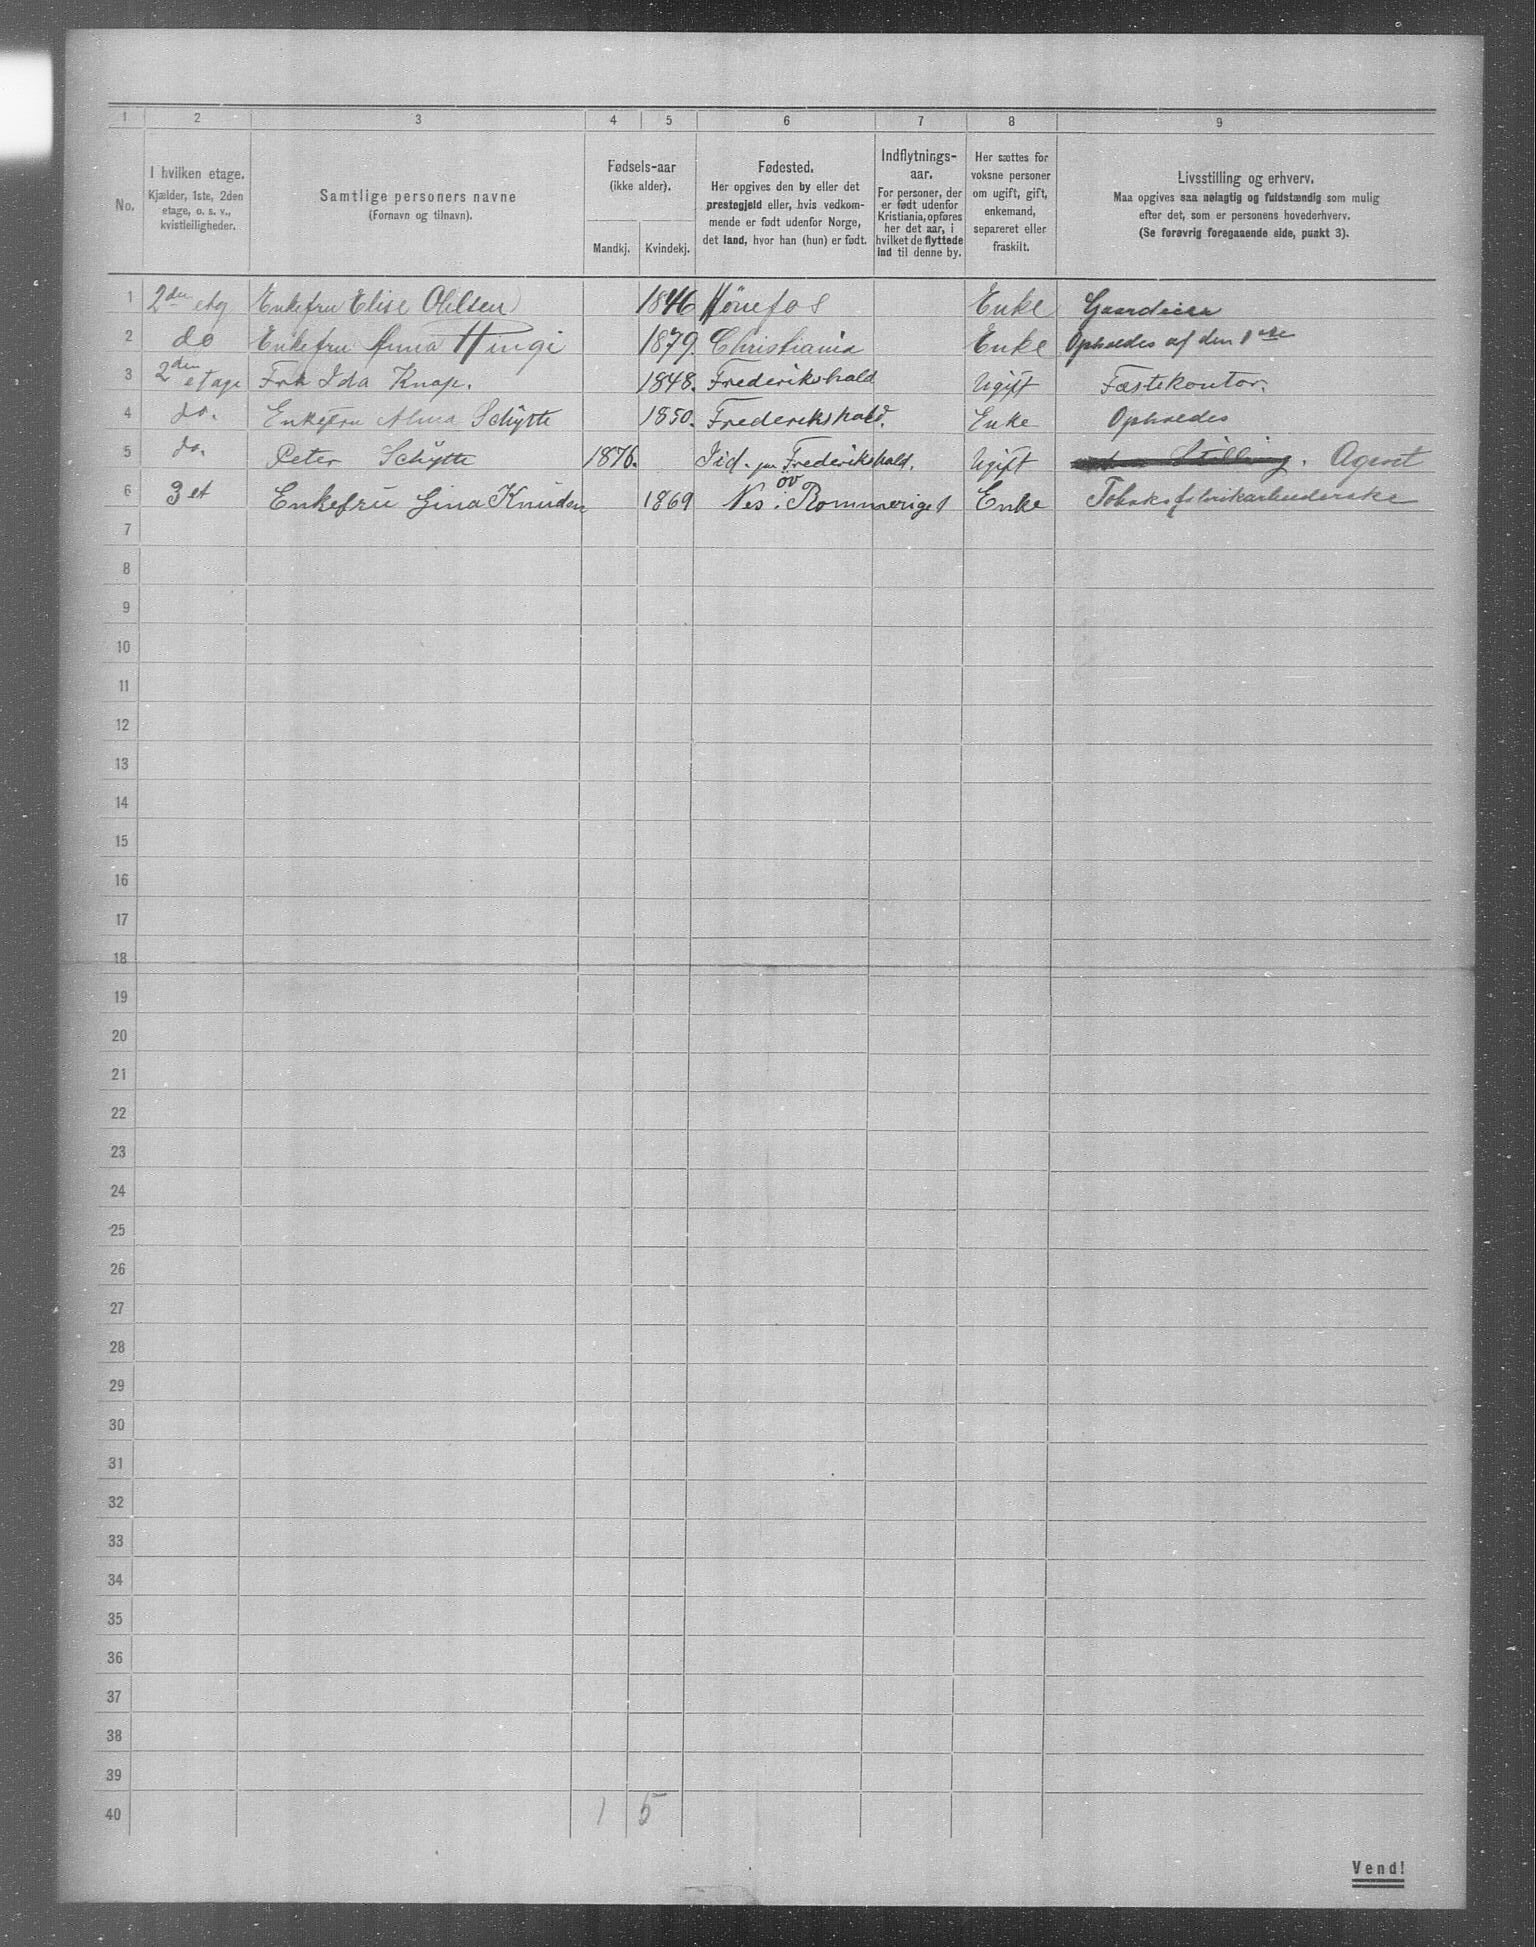 1 2 3 4 5 6 7 8 9
No.
I hvilken etage.
Kjælder, 1ste, 2den
etage, o. s. v.,
kvistleiligheder.
Samtlige personers navne
(Fornavn og tilnavn).
Fødsels-aar
(ikke alder).
Mandkj. Kvindekj.
Fødested.
Her opgives den by eller det
prestegjeld eller, hvis vedkom-
mende er født udenfor Norge,
det land, hvor han (hun) er født.
Indflytnings-
aar.
For personer, der
er født udenfor
Kristiania, opføres
her det aar, i
hvilket de flyttede
ind til denne by.
Her sættes for
voksne personer
om ugift, gift,
enkemand,
separeret eller
fraskilt.
Livsstilling og erhverv.
Maa opgives saa nøiagtig og fuldstændig som mulig
efter det, som er personens hovederhverv.
(Se forøvrig foregaaende side, punkt 3).
1 2den etg Enkefru Elise Ohlsen 1846 Hønefos Enke Gaardeier
2 do Enkefru Anna 1879. Christiania Enke Opholdes af den
3 2den etage Frk Ida Knap. 1848. Frederikshald Ugift Fæstekontor.
4 do. Enkefru Alma Schytte 1850. Frederikshald. Enke Opholdes
5 do. Peter Schytte 1876. Jid. pr Frederikshald. Ugift Stilling. Agent
6 3 et Enkefru Gina Knudsen 1869 Nes öv Rommeriget Enke Tobaksfabrikarbeiderske
7
8
9
10
11
12
13
14
15
16
17
18
19
20
21
22
23
24
25
26
27
28
29
30
31
32
33
34
35
36
37
38
39
40 1 5
Vend!